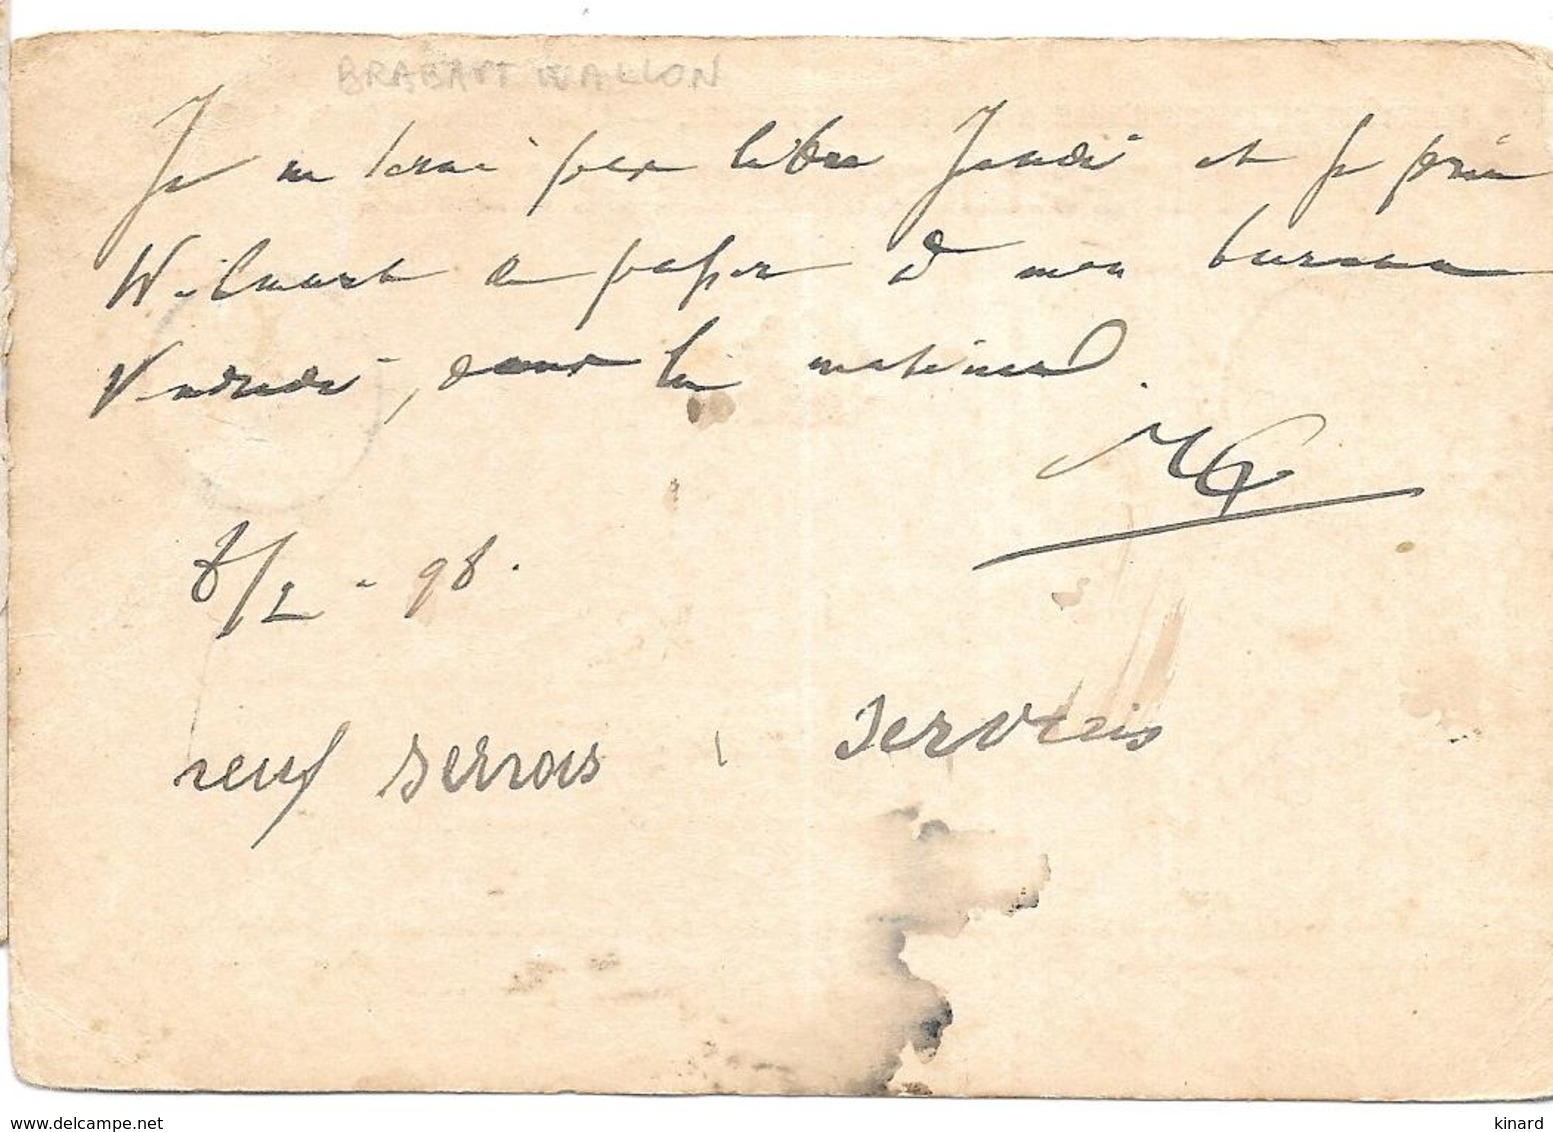 BRABANT WALLON
Je ne serai pas libre Jeudi et je prie
Wilmart de passer à mon bureau
Vendredi, dans la matinée.
8/2 - 98.
neuf serrois
servais
www.delcampe.net
kinard